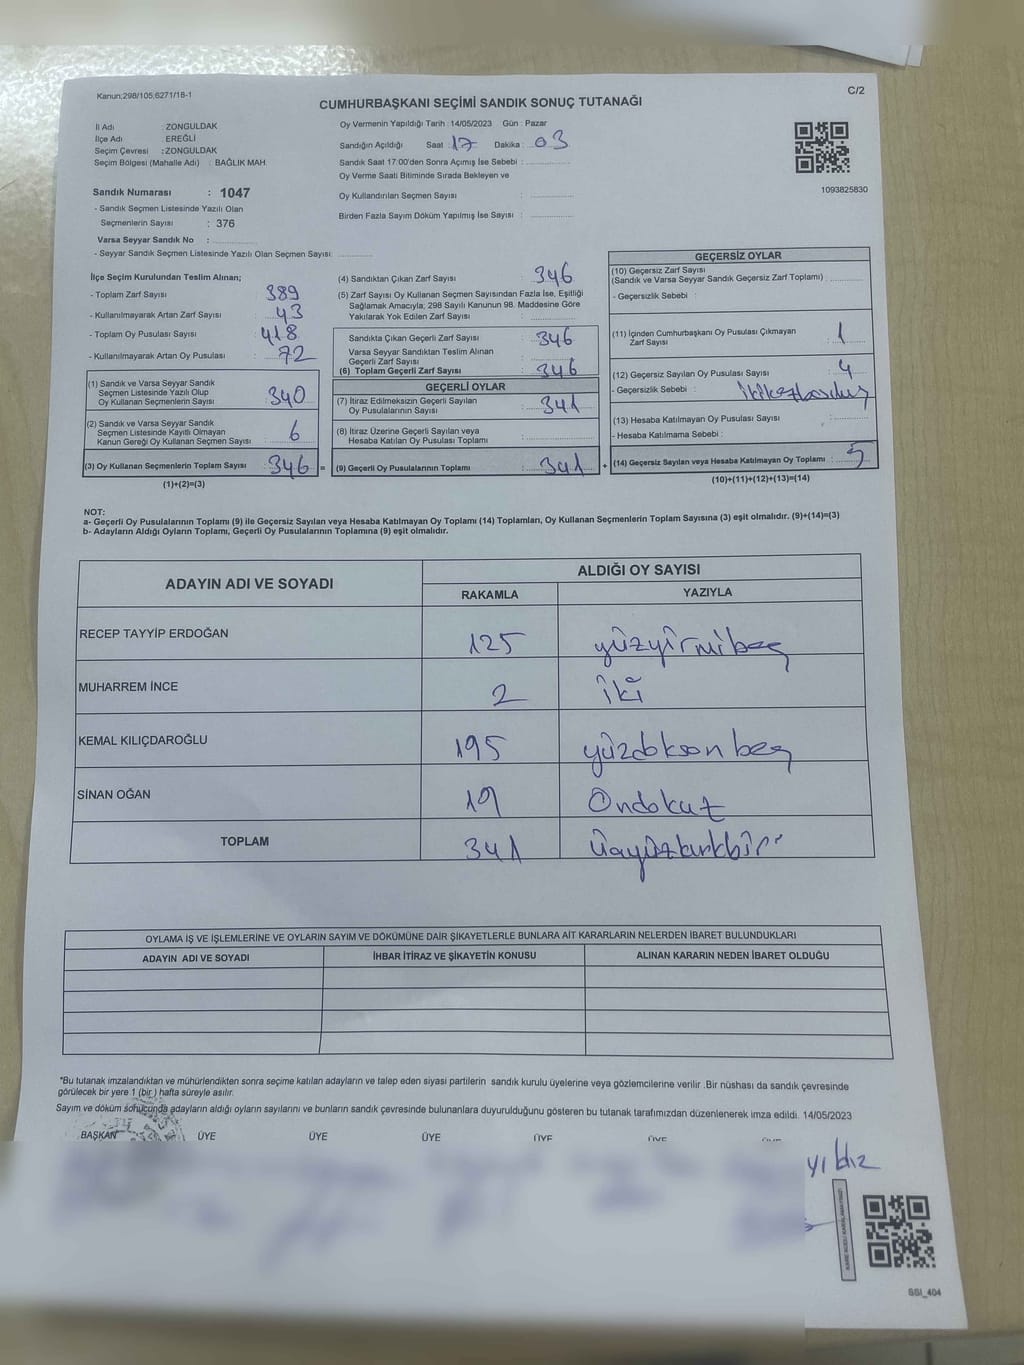 Kanun:298/105,6271/18-1
C/2
CUMHURBAŞKANI SEÇİMİ SANDIK SONUÇ TUTANAĞI
İl Adı : ZONGULDAK
İlçe Adı : EREĞLİ
Seçim Çevresi : ZONGULDAK
Seçim Bölgesi (Mahalle Adı) : BAĞLIK MAH.
Sandık Numarası : 1047
- Sandık Seçmen Listesinde Yazılı Olan
Seçmenlerin Sayısı : 376
Varsa Seyyar Sandık No :
- Seyyar Sandık Seçmen Listesinde Yazılı Olan Seçmen Sayısı:
Oy Vermenin Yapıldığı Tarih : 14/05/2023 Gün : Pazar
Sandığın Açıldığı Saat : 17 Dakika : 03
Sandık Saat 17.00'den Sonra Açımış İse Sebebi :
Oy Verme Saati Bitiminde Sırada Bekleyen ve
Oy Kullandırılan Seçmen Sayısı :
Birden Fazla Sayım Döküm Yapılmış İse Sayısı :
1093825830
İlçe Seçim Kurulundan Teslim Alınan;
- Toplam Zarf Sayısı : 389
- Kullanılmayarak Artan Zarf Sayısı : 43
- Toplam Oy Pusulası Sayısı : 418
- Kullanılmayarak Artan Oy Pusulası : 72
(1) Sandık ve Varsa Seyyar Sandık
Seçmen Listesinde Yazılı Olup
Oy Kullanan Seçmenlerin Sayısı : 340
(2) Sandık ve Varsa Seyyar Sandık
Seçmen Listesinde Kayıtlı Olmayan
Kanun Gereği Oy Kullanan Seçmen Sayısı : 6
(3) Oy Kullanan Seçmenlerin Toplam Sayısı : 346 =
(1)+(2)=(3)
(4) Sandıktan Çıkan Zarf Sayısı : 346
(5) Zarf Sayısı Oy Kullanan Seçmen Sayısından Fazla İse, Eşitliği
Sağlamak Amacıyla; 298 Sayılı Kanunun 98. Maddesine Göre
Yakılarak Yok Edilen Zarf Sayısı :
Sandıkta Çıkan Geçerli Zarf Sayısı : 346
Varsa Seyyar Sandıktan Teslim Alınan
Geçerli Zarf Sayısı :
(6) Toplam Geçerli Zarf Sayısı : 346
GEÇERLİ OYLAR
(7) İtiraz Edilmeksizin Geçerli Sayılan
Oy Pusulalarının Sayısı : 341
(8) İtiraz Üzerine Geçerli Sayılan veya
Hesaba Katılan Oy Pusulası Toplamı :
(9) Geçerli Oy Pusulalarının Toplamı : 341 +
GEÇERSİZ OYLAR
(10) Geçersiz Zarf Sayısı
(Sandık ve Varsa Seyyar Sandık Geçersiz Zarf Toplamı) :
- Geçersizlik Sebebi :
(11) İçinden Cumhurbaşkanı Oy Pusulası Çıkmayan
Zarf Sayısı : 1
(12) Geçersiz Sayılan Oy Pusulası Sayısı : 4
- Geçersizlik Sebebi :
(13) Hesaba Katılmayan Oy Pusulası Sayısı :
- Hesaba Katılmama Sebebi :
(14) Geçersiz Sayılan veya Hesaba Katılmayan Oy Toplamı : 5
(10)+(11)+(12)+(13)=(14)
NOT:
a- Geçerli Oy Pusulalarının Toplamı (9) ile Geçersiz Sayılan veya Hesaba Katılmayan Oy Toplamı (14) Toplamları, Oy Kullanan Seçmenlerin Toplam Sayısına (3) eşit olmalıdır. (9)+(14)=(3)
b- Adayların Aldığı Oyların Toplamı, Geçerli Oy Pusulalarının Toplamına (9) eşit olmalıdır.
ADAYIN ADI VE SOYADI ALDIĞI OY SAYISI
RAKAMLA YAZIYLA
RECEP TAYYİP ERDOĞAN 125 yüzyirmibeş
MUHARREM İNCE 2 iki
KEMAL KILIÇDAROĞLU 195 yüzdoksan beş
SİNAN OĞAN 19 Ondokuz
TOPLAM 341 Üçyüzkırkbir
OYLAMA İŞ VE İŞLEMLERİNE VE OYLARIN SAYIM VE DÖKÜMÜNE DAİR ŞİKAYETLERLE BUNLARA AİT KARARLARIN NELERDEN İBARET BULUNDUKLARI
ADAYIN ADI VE SOYADI İHBAR İTİRAZ VE ŞİKAYETİN KONUSU ALINAN KARARIN NEDEN İBARET OLDUĞU
*Bu tutanak imzalandıktan ve mühürlendikten sonra seçime katılan adayların ve talep eden siyasi partilerin sandık kurulu üyelerine veya gözlemcilerine verilir .Bir nüshası da sandık çevresinde
görülecek bir yere 1 (bir) hafta süreyle asılır.
Sayım ve döküm sonucunda adayların aldığı oyların sayılarını ve bunların sandık çevresinde bulunanlara duyurulduğunu gösteren bu tutanak tarafımızdan düzenlenerek imza edildi. 14/05/2023
BAŞKAN ÜYE ÜYE ÜYE ÜYE ÜYE
yıldız
SSI_404